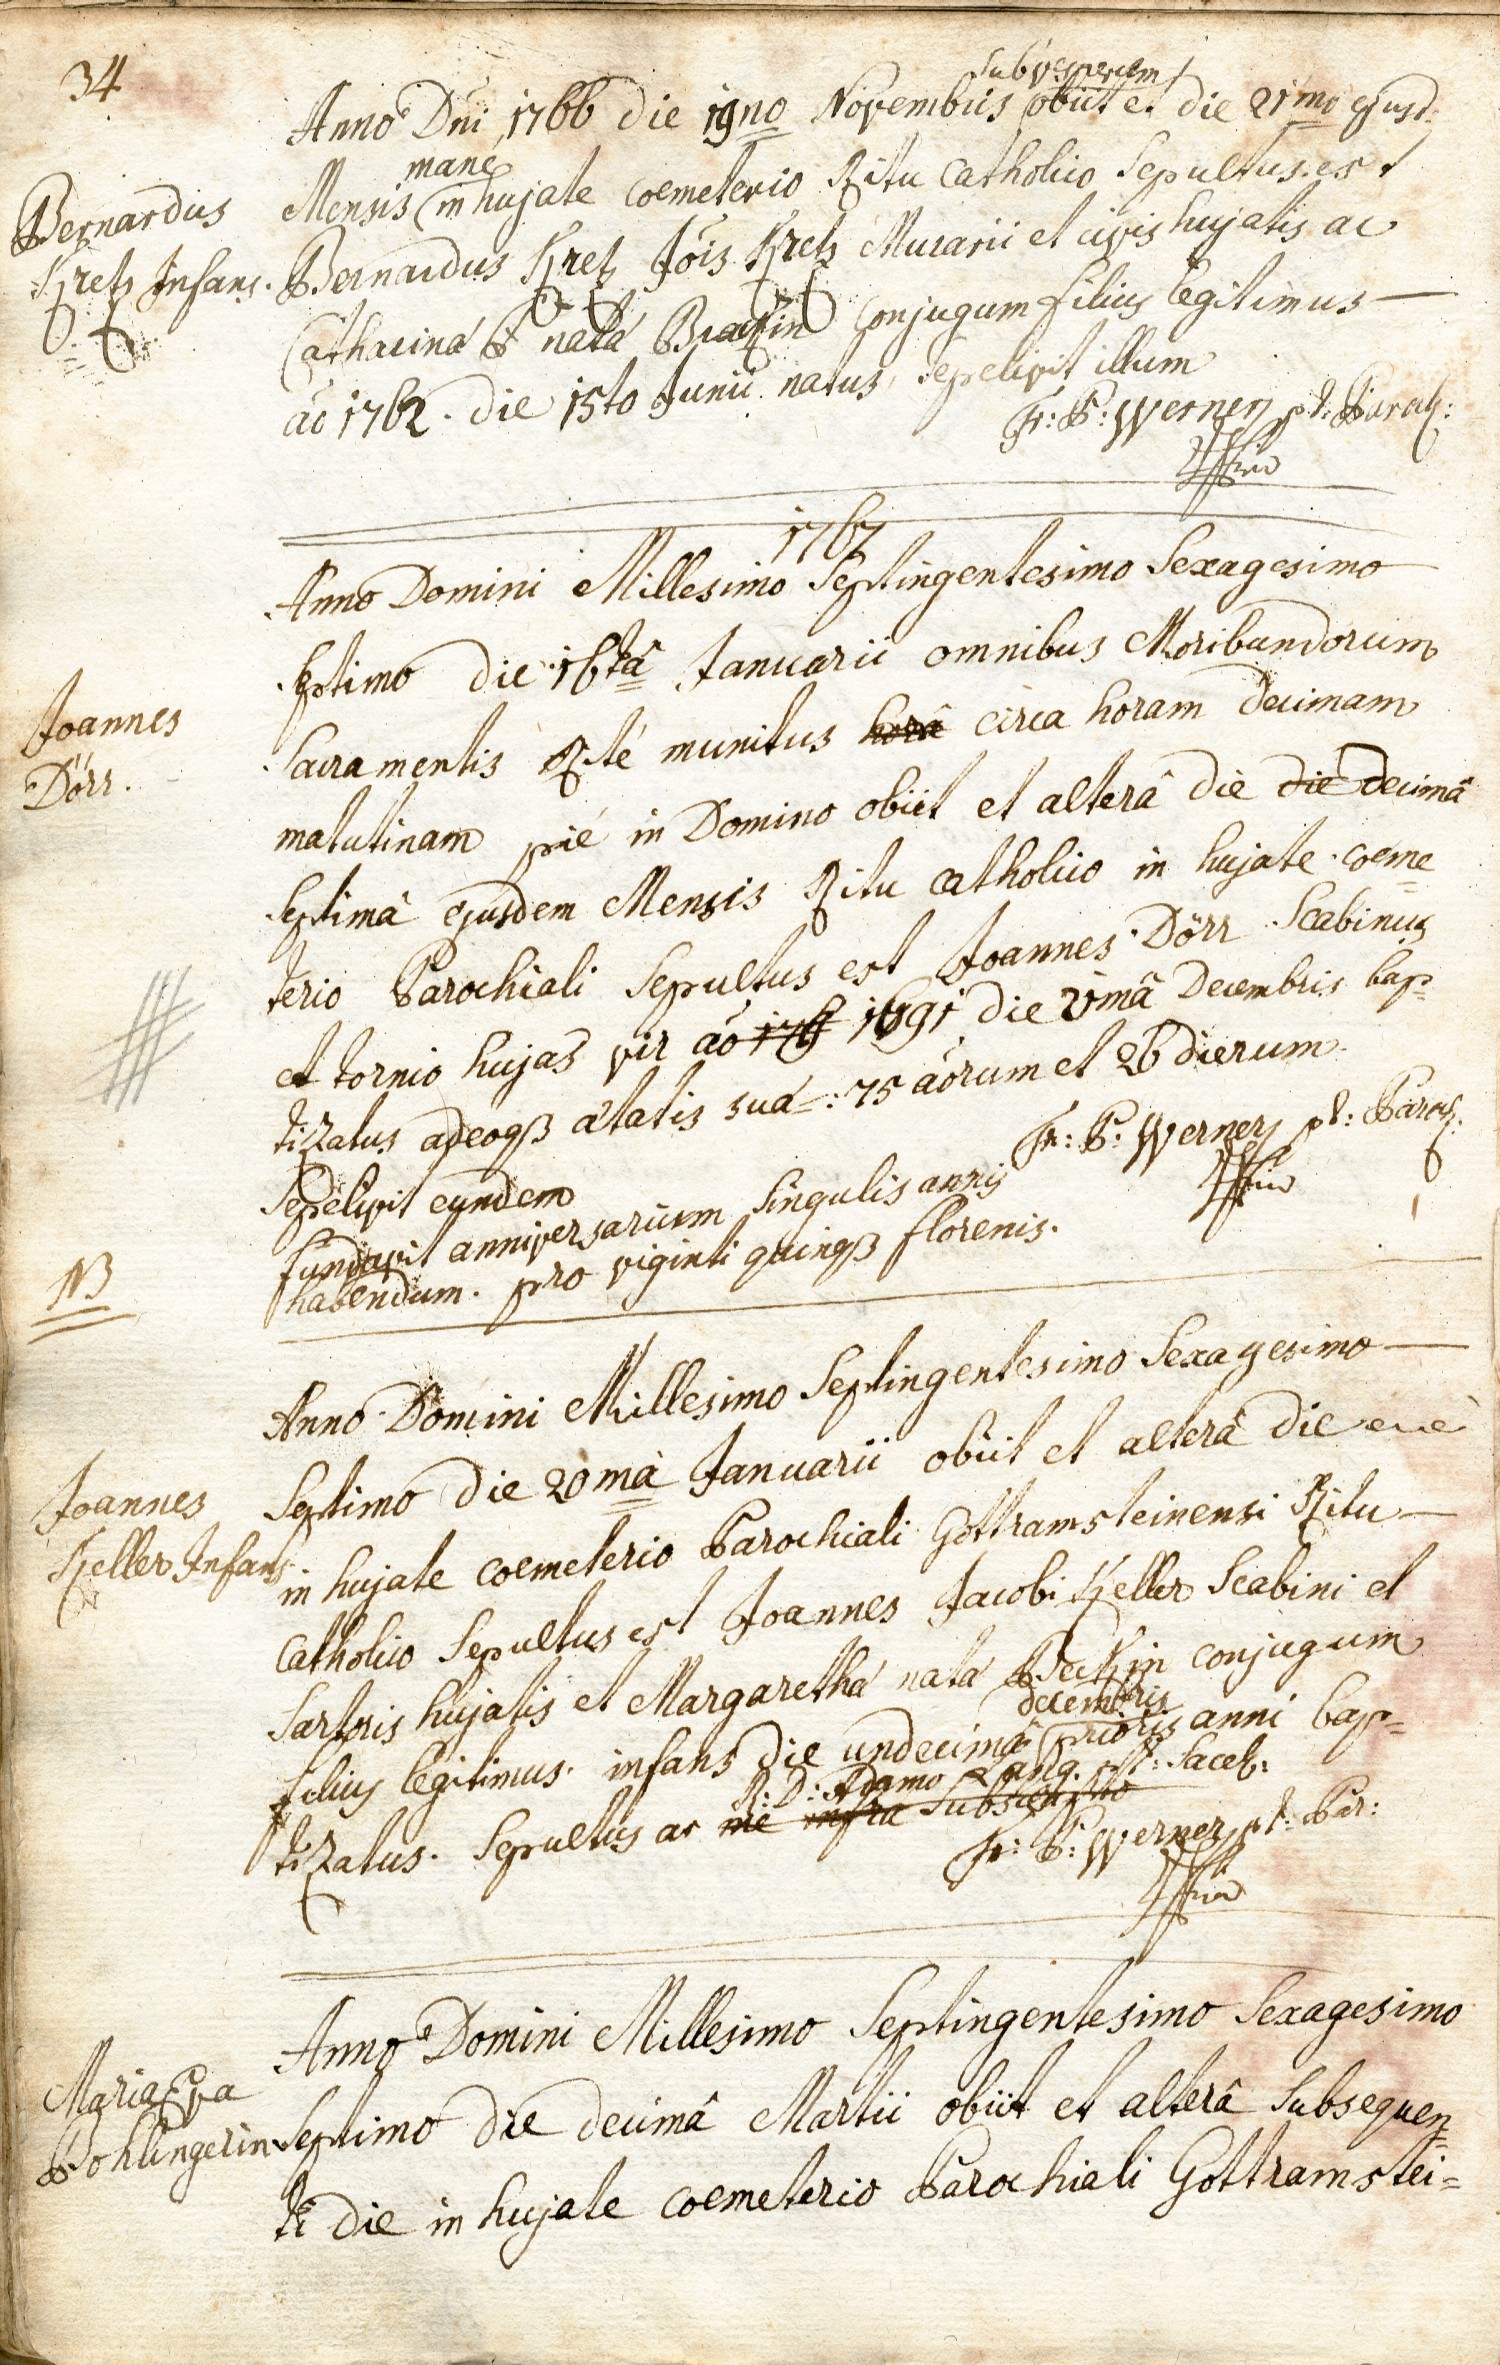 34
sub vesperem
Anno Dni 1766 die 19no Novembris obiit et die 21mo ejusd:
mane
Mensis in hujate coemeterio Ritu Catholico Sepultus est
Bernardus
Kretz Infans.
Bernardus Kretz Jois Kretz Murarii et civis hujatis ac
Catharina nata conjugum filius legitimus —
ao 1762. die 15to Junii natus, sepelivit illum
Fr: P: Werner p.t: Paroch:
1767
Anno Domini Millesimo Septingentesimo Sexagesimo
septimo die 16tâ Januarii omnibus Moribundorum
Joannes
Dörr.
Sacramentis Rité munitus horâ circa horam decimam
matutinam pié in Domino obiit et alterâ die die decimâ
septimâ ejusdem Mensis Ritu Catholico in hujate coeme
terio Parochiali Sepultus est Joannes Dörr Scabinus
et tornio hujas vir ao 1691 die 21mâ Decembris bap=
tizatus adeoqß ætatis suæ: 75 aorum et 26 dierum.
Fr: P: Werner p.t: Paroch:
Sepelivit eundem
NB
fundavit anniversarium singulis annis
habendum. pro viginti quinqß florenis.
Anno Domini Millesimo Septingentesimo Sexagesimo —
Septimo die 20mâ Januarii obiit et alterâ die
Joannes
Keller Infans
in hujate coemeterio Parochiali Gottramsteinensi Ritu —
Catholico Sepultus est Joannes Jacobi Keller Scabini et
Sartoris hujatis et Margaretha nata conjugum
decembris
filius legitimus. infans die undecimâ prioris anni bap=
R: D: Adamo Lang. p.t: Sacel:
tizatus. Sepultus ac me infra Subscripto
Fr: P: Werner p.t: Par:
Anno Domini Millesimo Septingentesimo Sexagesimo
Maria Eva
Bohlingerin
Septimo die decimâ Martii obiit et alterâ subsequen=
ti die in hujate coemeterio Parochiali Gottramstei=